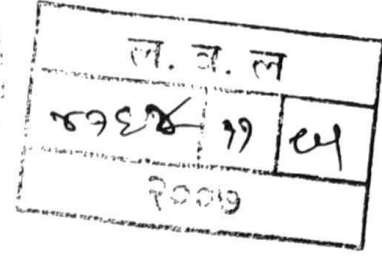 ल. व. ल
७१६४ ११ ८५
२००७